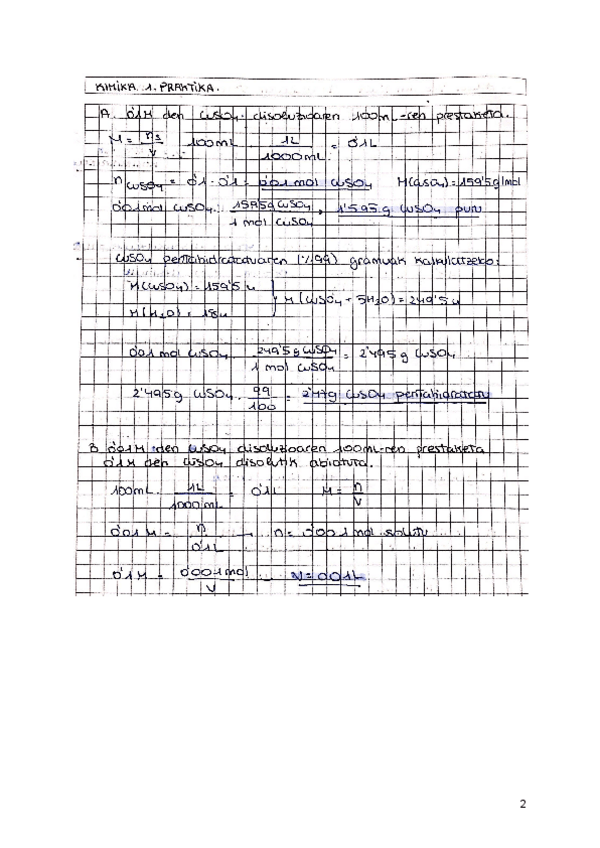 KIMIKA 1. PRAKTIKA.
A. 0'1M den CuSO4 disoluzioaren 100mL-ren prestaketa.
M = ns/V 100mL 1L/1000mL = 0'1L
nCuSO4 = 0'1 · 0'1 = 0'01 mol CuSO4 M(CuSO4) = 159'5g/mol
0'01mol CuSO4 · 159'5g CuSO4/1 mol CuSO4 = 1'595g CuSO4 puru
CuSO4 pentahidratatuaren (%99) gramuak kalkulatzeko:
M(CuSO4) = 159'5 u
M(H2O) = 18u } M(CuSO4 + 5H2O) = 249'5 u
0'01 mol CuSO4 249'5g CuSO4/1 mol CuSO4 = 2'495g CuSO4
2'495g CuSO4 · 99/100 = 2'47g CuSO4 pentahidratatu
B 0'01M den CuSO4 disoluzioaren 100mL-ren prestaketa
0'1M den CuSO4 disolutik abiatuta.
100mL · 1L/1000mL = 0'1L M = n/V
0'01M = n/0'1L → n = 0'001 mol solutu
0'1M = 0'001mol/V V = 0'01L
2